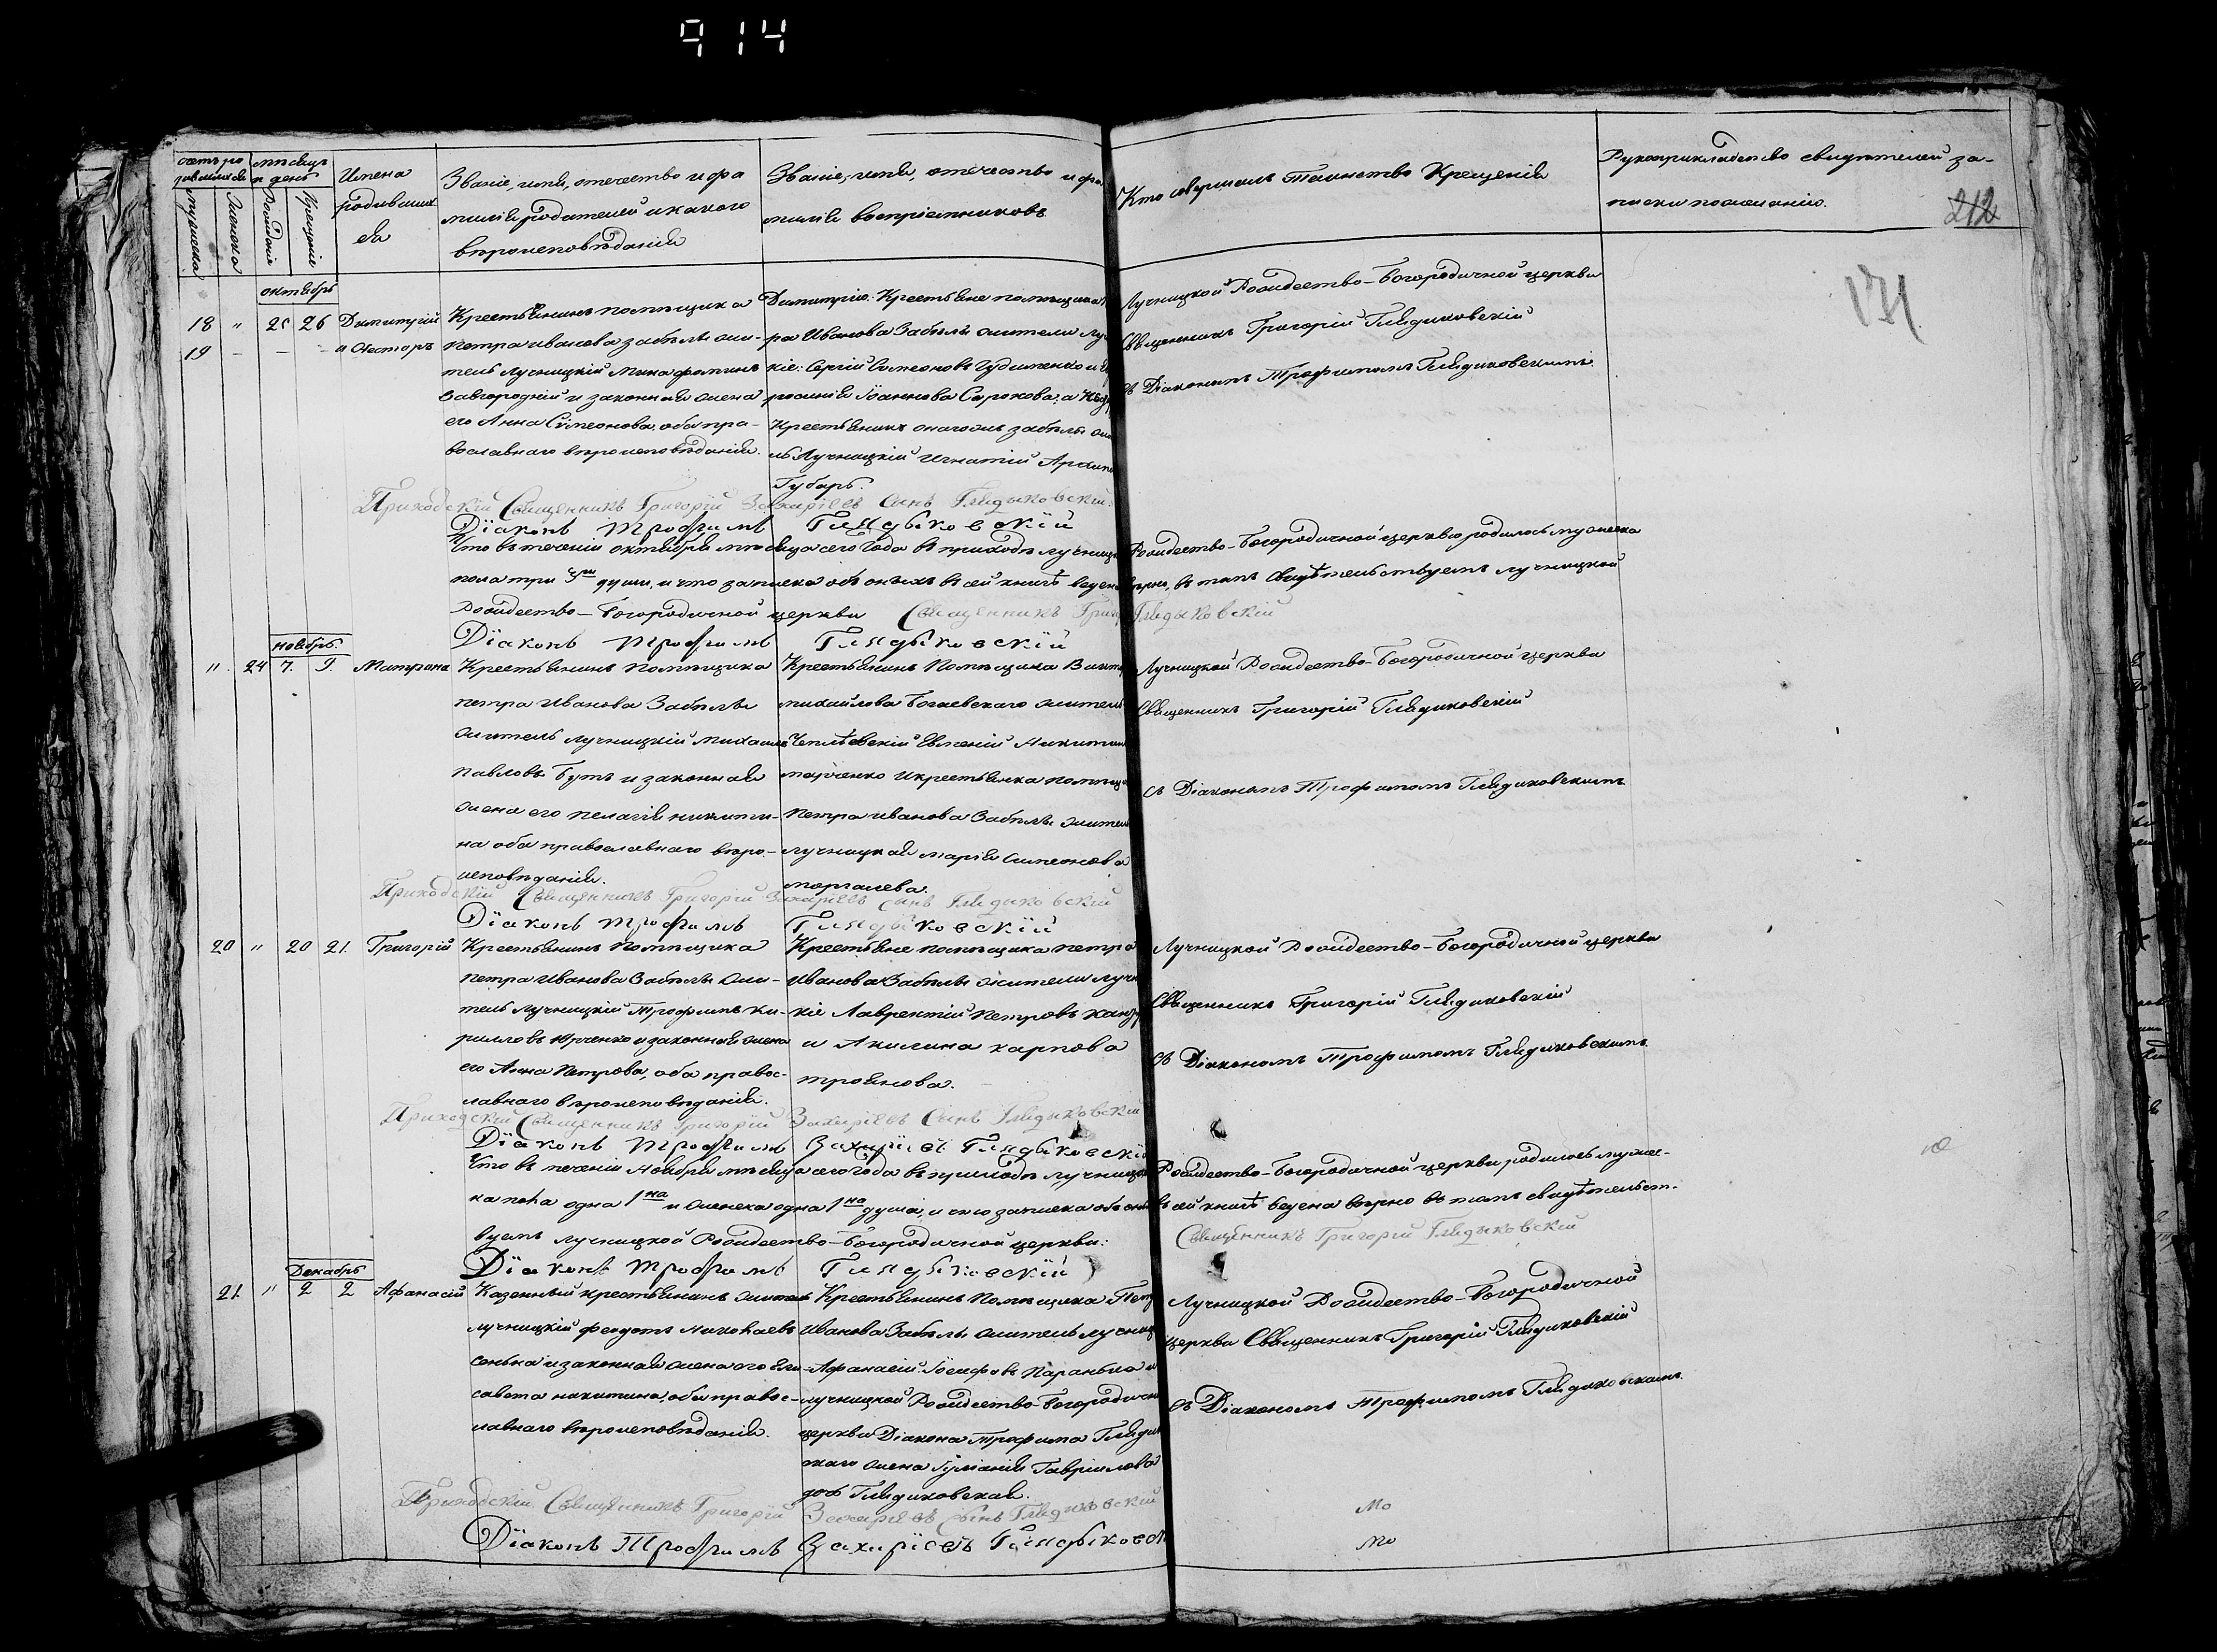 914
счетъ ро
мѣсяцъ
и день
Имена
родивших
ся
Званіе, имя, отечество и фа
милія родителей и какого
вѣроисповѣданія
Званіе, имя, отечество и фа
милія воспріемниковъ
Кто совершалъ Таинство Крещенія
Рукоприкладство свидѣтелей за-
писки по желанію.
212
мужеска
женска
Рожденія
Крещенія
171
октябрь
18 " 25 26 Димитрій
19 - - - и Несторъ
Крестьянинъ помѣщика
Петра Иванова Забѣлы жи-
тель Лучницкій Мина Фоминъ
Завгородній и законная жена
его Анна Симеонова, оба пра-
вославнаго вѣроисповѣданія.
Димитрію: Крестьяне помѣщика
ра Иванова Забѣлы жители Лу
кіе: Сергій Симеоновъ и
Іоаннова а
Крестьянинъ онагожъ Забѣлы
ль Лучницкій Игнатій
Губарь.
Лучницкой Рождество-Богородичной церкви
Священникъ Григорій Глядиковскій
съ Діакономъ Трофимомъ Глядиковскимъ.
Приходскій Священникъ Григорій Захаріевъ Сынъ Глядыковскій.
Діаконъ Трофимъ Глядыковскій
Что въ теченіи октября мѣсяца сего года въ приходѣ Лучниц Рождество-Богородичной церквы родилось мужеска
пола три 3ри души, и что записка объ оныхъ въ сей книгѣ веден вѣрно, въ томъ свидѣтельствуемъ Лучницкой
Рождество-Богородичной церкви Священникъ Григ Глядыковскій
Діаконъ Трофимъ Глядыковскій
ноябрь.
" 24 7. 9. Матрона
Крестьянинъ помѣщика
Петра Иванова Забѣлы
житель Лучницкій Михаилъ
Павловъ Бутъ и законная
жена его Пелагія Никити-
на оба православнаго вѣро-
исповѣданія.
Крестьянинъ Помѣщика
Михайлова Богаевскаго житель
Евгеній Никитинъ
и крестьянка помѣщи
Петра Иванова Забѣлы жител
Лучницкая Марія Симеонова
Лучницкой Рождество-Богородичной церкви
Священникъ Григорій Глядиковскій
съ Діакономъ Трофимомъ Глядиковскимъ
Приходскій Священникъ Григорій Захаріевъ Сынъ Глядыковскій
Діаконъ Трофимъ Глядыковскій
20 " 20 21. Григорій
Крестьянинъ Помѣщика
Петра Иванова Забѣлы жи-
тель Лучницкій Трофимъ Ки-
рилловъ Юрченко и законная жена
его Анна Петрова, оба правос-
лавнаго вѣроисповѣданія.
Крестьяне помѣщика Петра
Иванова Забѣлы жители Лучн
кіе Лаврентій Петровъ
и Акилина Карпова
Троянова.
Лучницкой Рождество-Богородичной церкви
Священникъ Григорій Глядиковскій
съ Діакономъ Трофимомъ Глядиковскимъ.
Приходскій Священникъ Григорій Захаріевъ Сынъ Глядыковскій
Діаконъ Трофимъ Захаріевъ Глядыковскій
Что въ теченіи Ноября мѣсяца сего года въ приходѣ Лучниц Рождество-Богородичной церкви, родилось мужес-
ка пола одна 1на и женска одна 1на душа, и что записка объ оны въ сей книгѣ ведена вѣрно въ томъ свидѣтельст-
вуемъ Лучницкой Рождество-Богородичной церкви: Священникъ Григорій Глядыковскій
Діаконъ Трофимъ Глядыковскій
Декабрь
21. " 2 2 Афанасій
Казенный крестьянинъ житель
Лучницкій Федотъ Николаевъ
и законная жена его Ели-
савета Никитина, оба правос-
лавнаго вѣроисповѣданія.
Крестьянинъ Помѣщика Пет
Иванова Забѣлы житель Лучниц
Афанасій Іосифовъ и
Лучницкой Рождество-Богородичн
церкви Діакона Трофима Гляди
скаго жена Іуліанія Гавріилова
Глядиковская.
Лучницкой Рождество-Богородичной
церкви Священникъ Григорій Глядиковскій
съ Діакономъ Трофимомъ Глядиковскимъ.
Приходскій Священникъ Григорій Захаріевъ Сынъ Глядыковскій
Діаконъ Трофимъ Захаріевъ Глядыковск